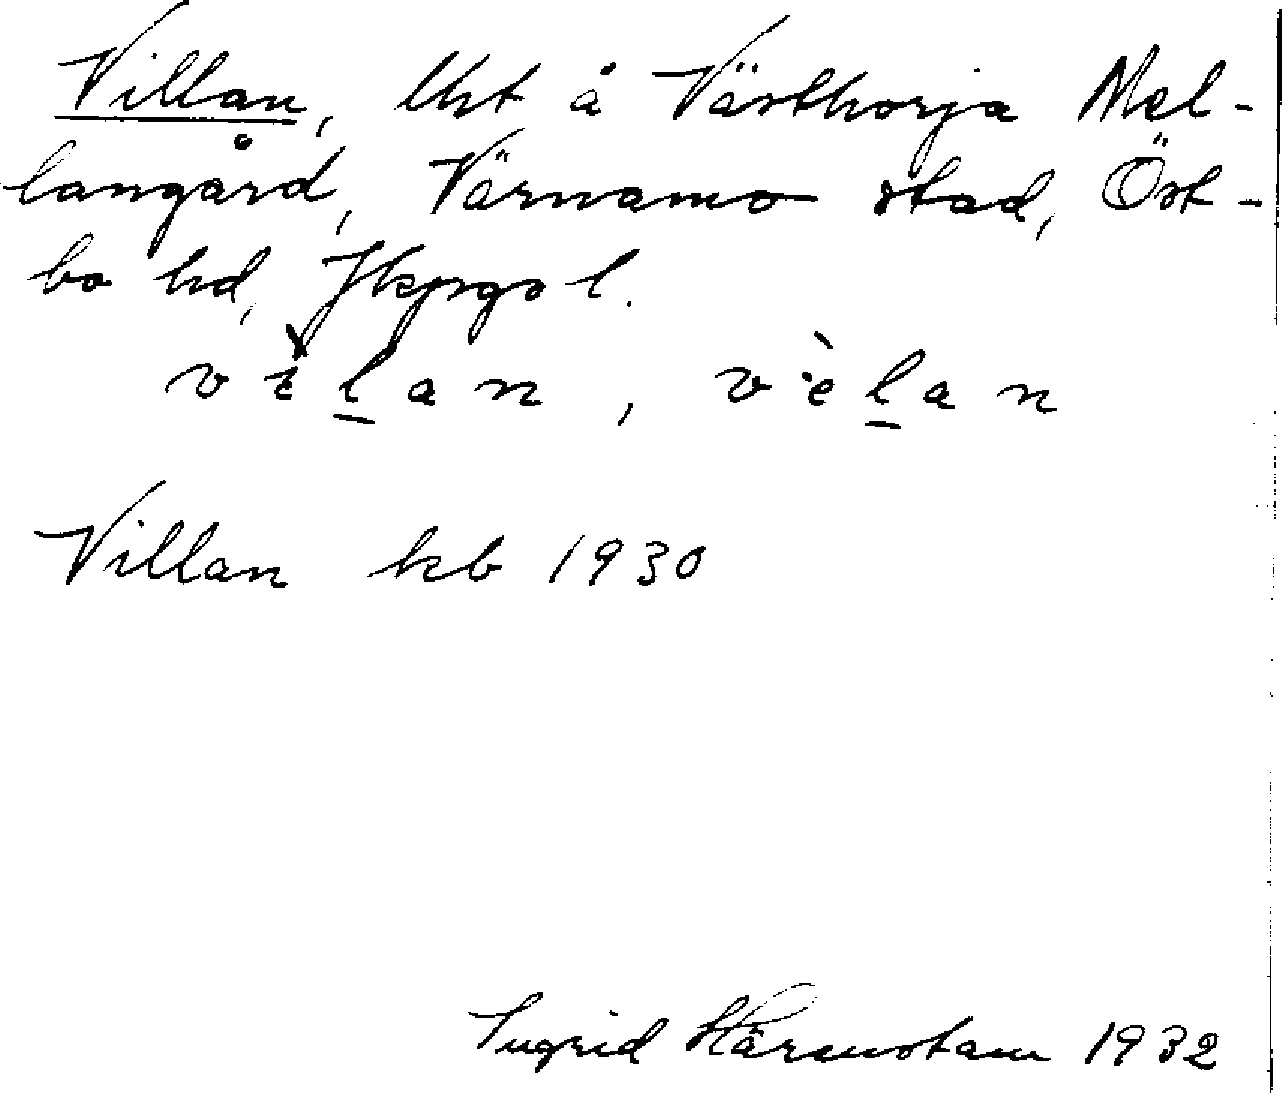 Villan, lht å Västhorja Mel-
langård, Värnamo stad, Öst-
bo hd, Jkpgs l.
vìlan, vèlan
Villan kb 1930
Ingrid 1932